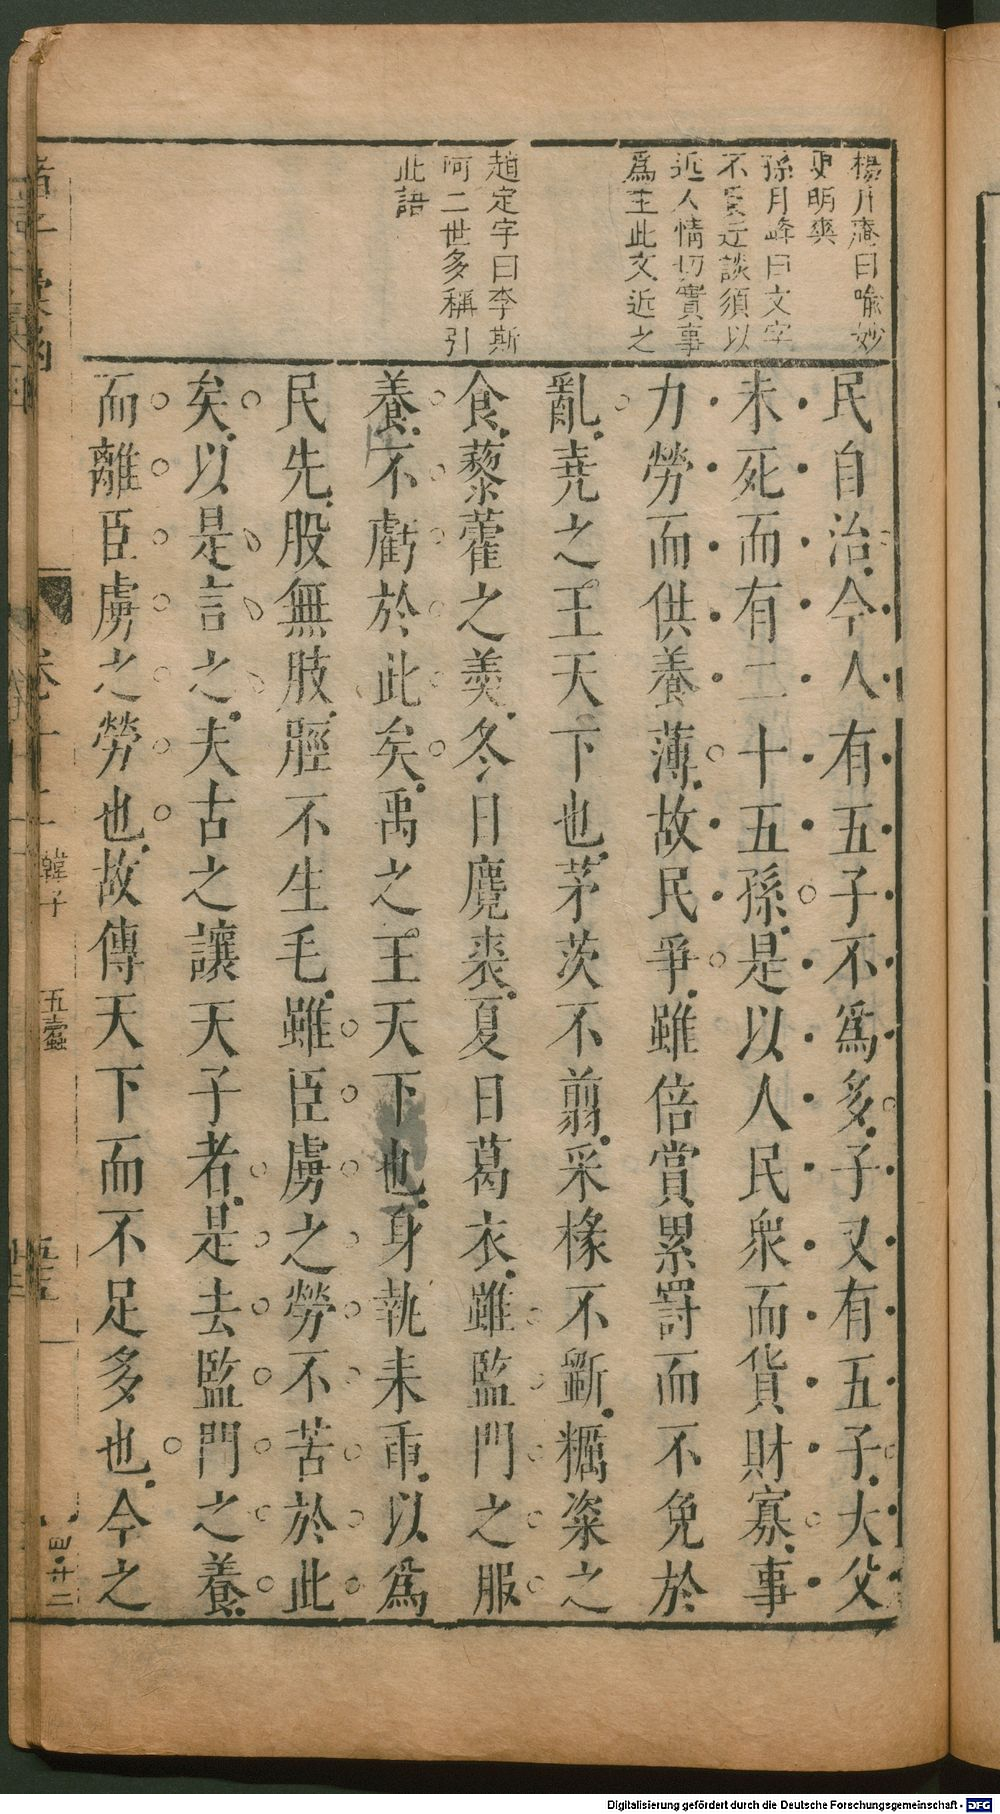 楊升庵曰喻妙
更明爽
孫月峰曰文字
不厭近談須以
近人情切實事
為主此文近之
趙定宇曰李斯
阿二世多稱引
此語
民自治今人有五子不爲多子又有五子大父
未死而有二十五孫是以人民衆而貨財寡事
力勞而供養薄故民爭雖倍賞累罰而不免於
亂堯之王天下也茅茨不翦采椽不斵糲粢之
食藜藿之羹冬日麑裘夏日葛衣雖監門之服
養不虧於此矣禹之王天下也身執耒臿以爲
民先股無肢脛不生毛雖臣虜之勞不苦於此
矣以是言之夫古之讓天子者是去監門之養
而離臣虜之勞也故傳天下而不足多也今之
諸子彙函
卷十二
韓子
五蠹
Digitalisierung gefördert durch die Deutsche Forschungsgemeinschaft - DFG